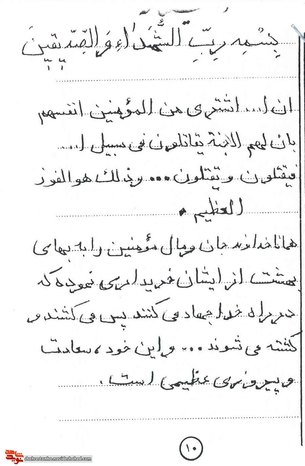 بسمه ربّ الشّهداءِ و الصّدیقین
ان ا... اشتری من المؤمنین انفسهم
بان لهم الجنة یقاتلون فی سبیل ا...
فیقتلون و یقتلون... و ذلک هو الفوز
العظیم.
همانا خداوند جان و مال مؤمنین را به بهای
بهشت از ایشان خریداری نموده که
در راه خدا جهاد می کنند پس می کشند و
کشته می شوند... و این خود، سعادت
و پیروزی عظیمی است.
۱۰